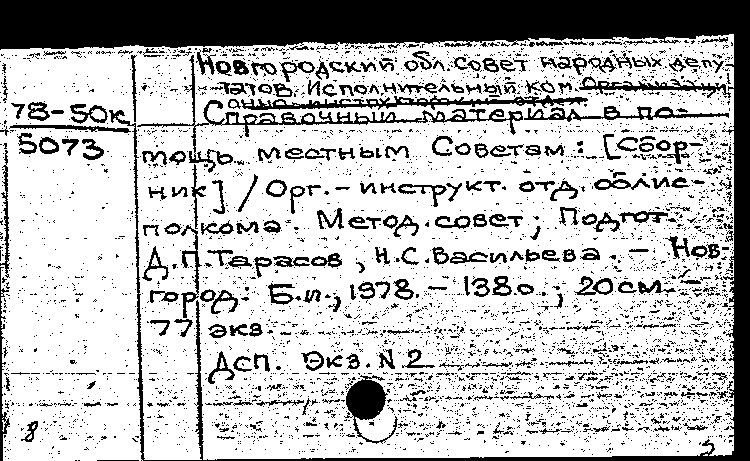 Новгородский обл. совет народных депу-
татов. Исполнительный ком. Организаци-
онно-инструкторский отдел
78-50к Справочный материал в по-
5073 мощь местным Советам: [Сбор-
ник] / Орг.-инструкт. отд. облис-
полкома. Метод. совет; Подгот.
Д.П. Тарасов, Н.С. Васильева. — Нов-
город: Б.и., 1978. — 138 с.; 20 см. —
77 экз.
Дсп. Экз. N 2
8